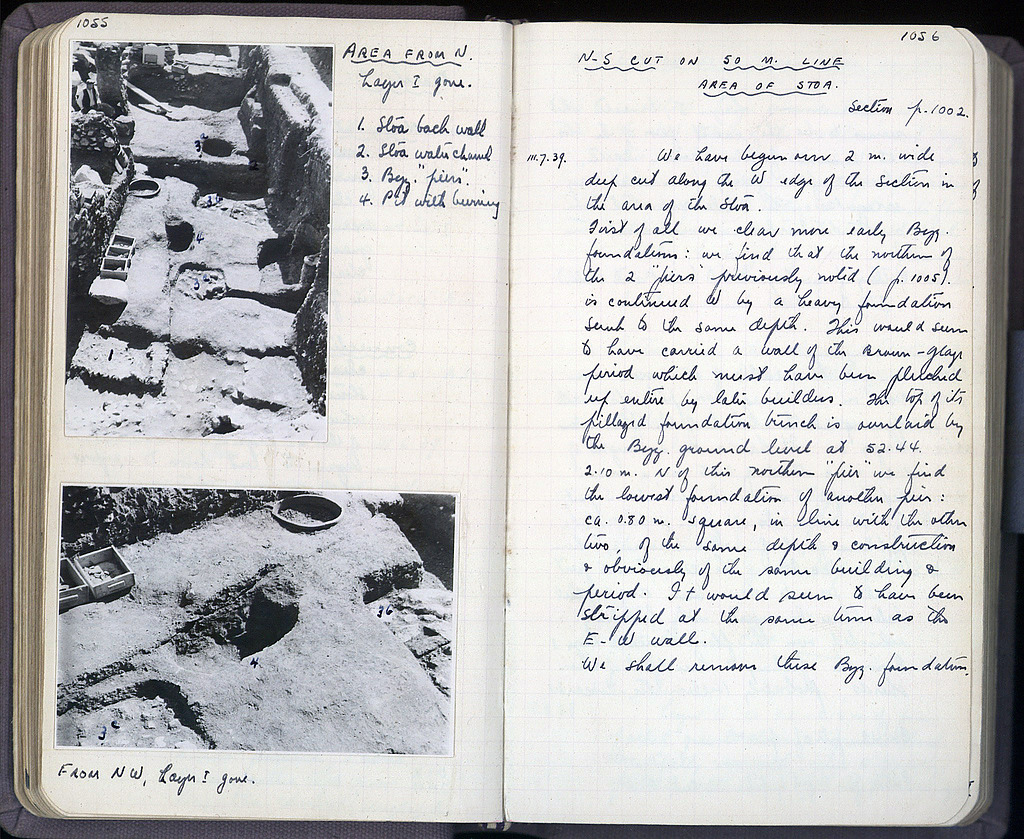 1055
AREA FROM N.
Layer I gone.
1. Stoa back wall
2. Stoa water channel
3. Byz. "piers".
4. Pit with burning
3
2
3b
4
3
1
3b
4
3
FROM NW, Layer I gone.
1056
N-S CUT ON 50 M. LINE
AREA OF STOA.
Section p. 1002.
III.7.39. We have begun our 2 m. wide
deep cut along the W edge of the section in
the area of the Stoa.
First of all we clear more early Byz.
foundations: we find that the northern of
the 2 "piers" previously noted (p. 1005).
is continued W by a heavy foundation
sunk to the same depth. This would seem
to have carried a wall of the Brown-glaze
period which must have been plucked
up entire by later builders. The top of its
pillaged foundation trench is overlaid by
the Byz. ground level at 52.44.
2.10 m. N of this northern "pier" we find
the lowest foundation of another pier:
ca. 0.80 m. square, in line with the other
two, of the same depth & construction
& obviously of the same building &
period. It would seem to have been
stripped at the same time as the
E-W wall.
We shall remove these Byz. foundation.